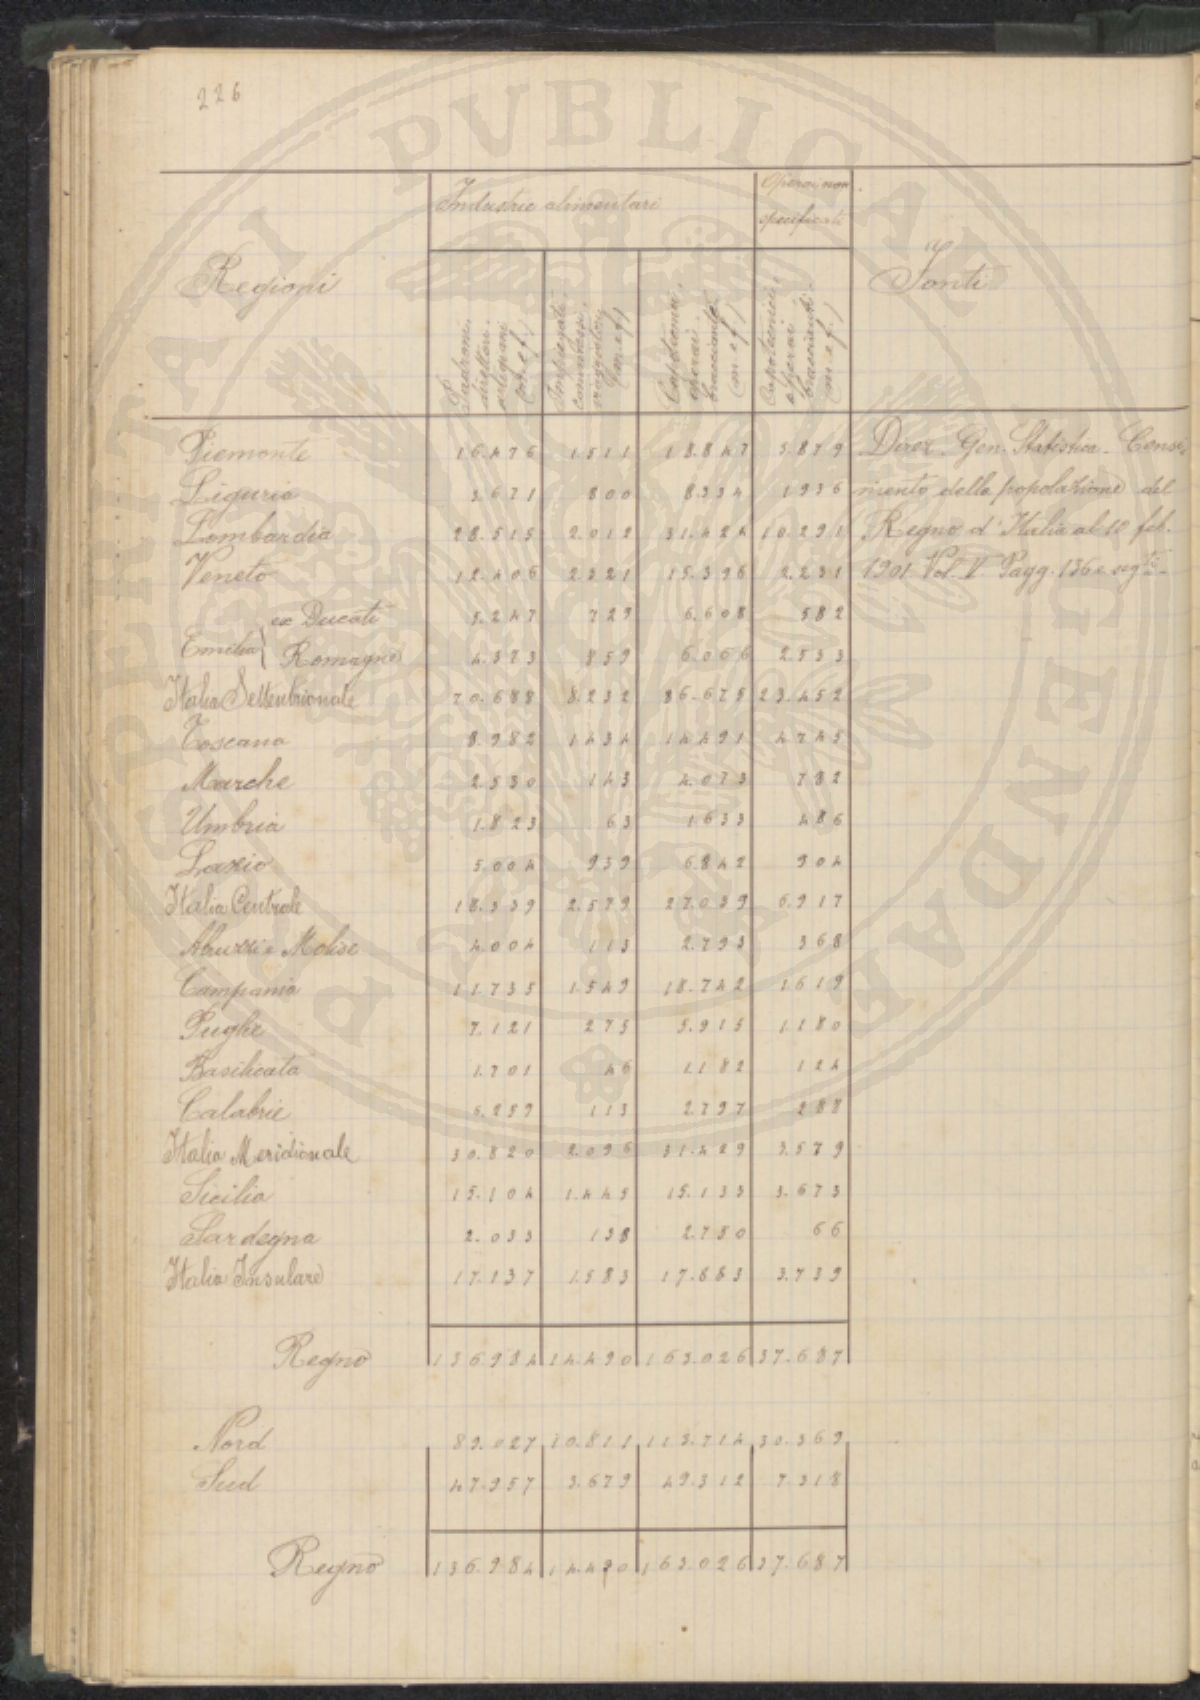 226
Industrie alimentari
Operai non
specificati
Regioni
Fonti
Padroni, direttori, artigiani (m. e f.)
Impiegati, commessi, viaggiatori (m. e f.)
Capidiomai, operai, braccianti (m. e f.)
Capotecnici, operai, braccianti (m. e f.)
Piemonte 16.476 1511 18.847 5.879 Direz. Gen. Statistica - Censi-
Liguria 3.671 800 8.334 1936 mento della popolazione del
Lombardia 28.515 2.012 31.424 10.291 Regno d'Italia al 10 feb.
Veneto 12.406 2321 15.396 2.231 1901 Vol. V Pagg. 136 e segti.
ex Ducati 5.247 729 6.608 582
Emilia Romagna 4.373 859 6.066 2533
Italia Settentrionale 70.688 8.232 86.675 23.452
Toscana 8.982 1434 14491 4745
Marche 2.530 143 4.073 782
Umbria 1.823 63 1633 486
Lazio 5.004 939 6842 904
Italia Centrale 18.339 2.579 27.039 6.917
Abruzzi e Molise 4.004 113 2.793 368
Campania 11.735 1.549 18.742 1619
Puglie 7.121 275 5.915 1.180
Basilicata 1.701 46 1.182 124
Calabrie 6.259 113 2.797 288
Italia Meridionale 30.820 2.096 31.429 3.579
Sicilia 15.104 1.445 15.133 3.673
Sardegna 2.033 138 2.750 66
Italia Insulare 17.137 1.583 17.883 3.739
Regno 136.984 14.490 163.026 37.687
Nord 89.027 10.811 113.714 30.369
Sud 47.957 3.679 49.312 7.318
Regno 136.984 14.490 163.026 37.687
PVBLICAE VTILITATI CONSVLENDAE PROSPERITATI